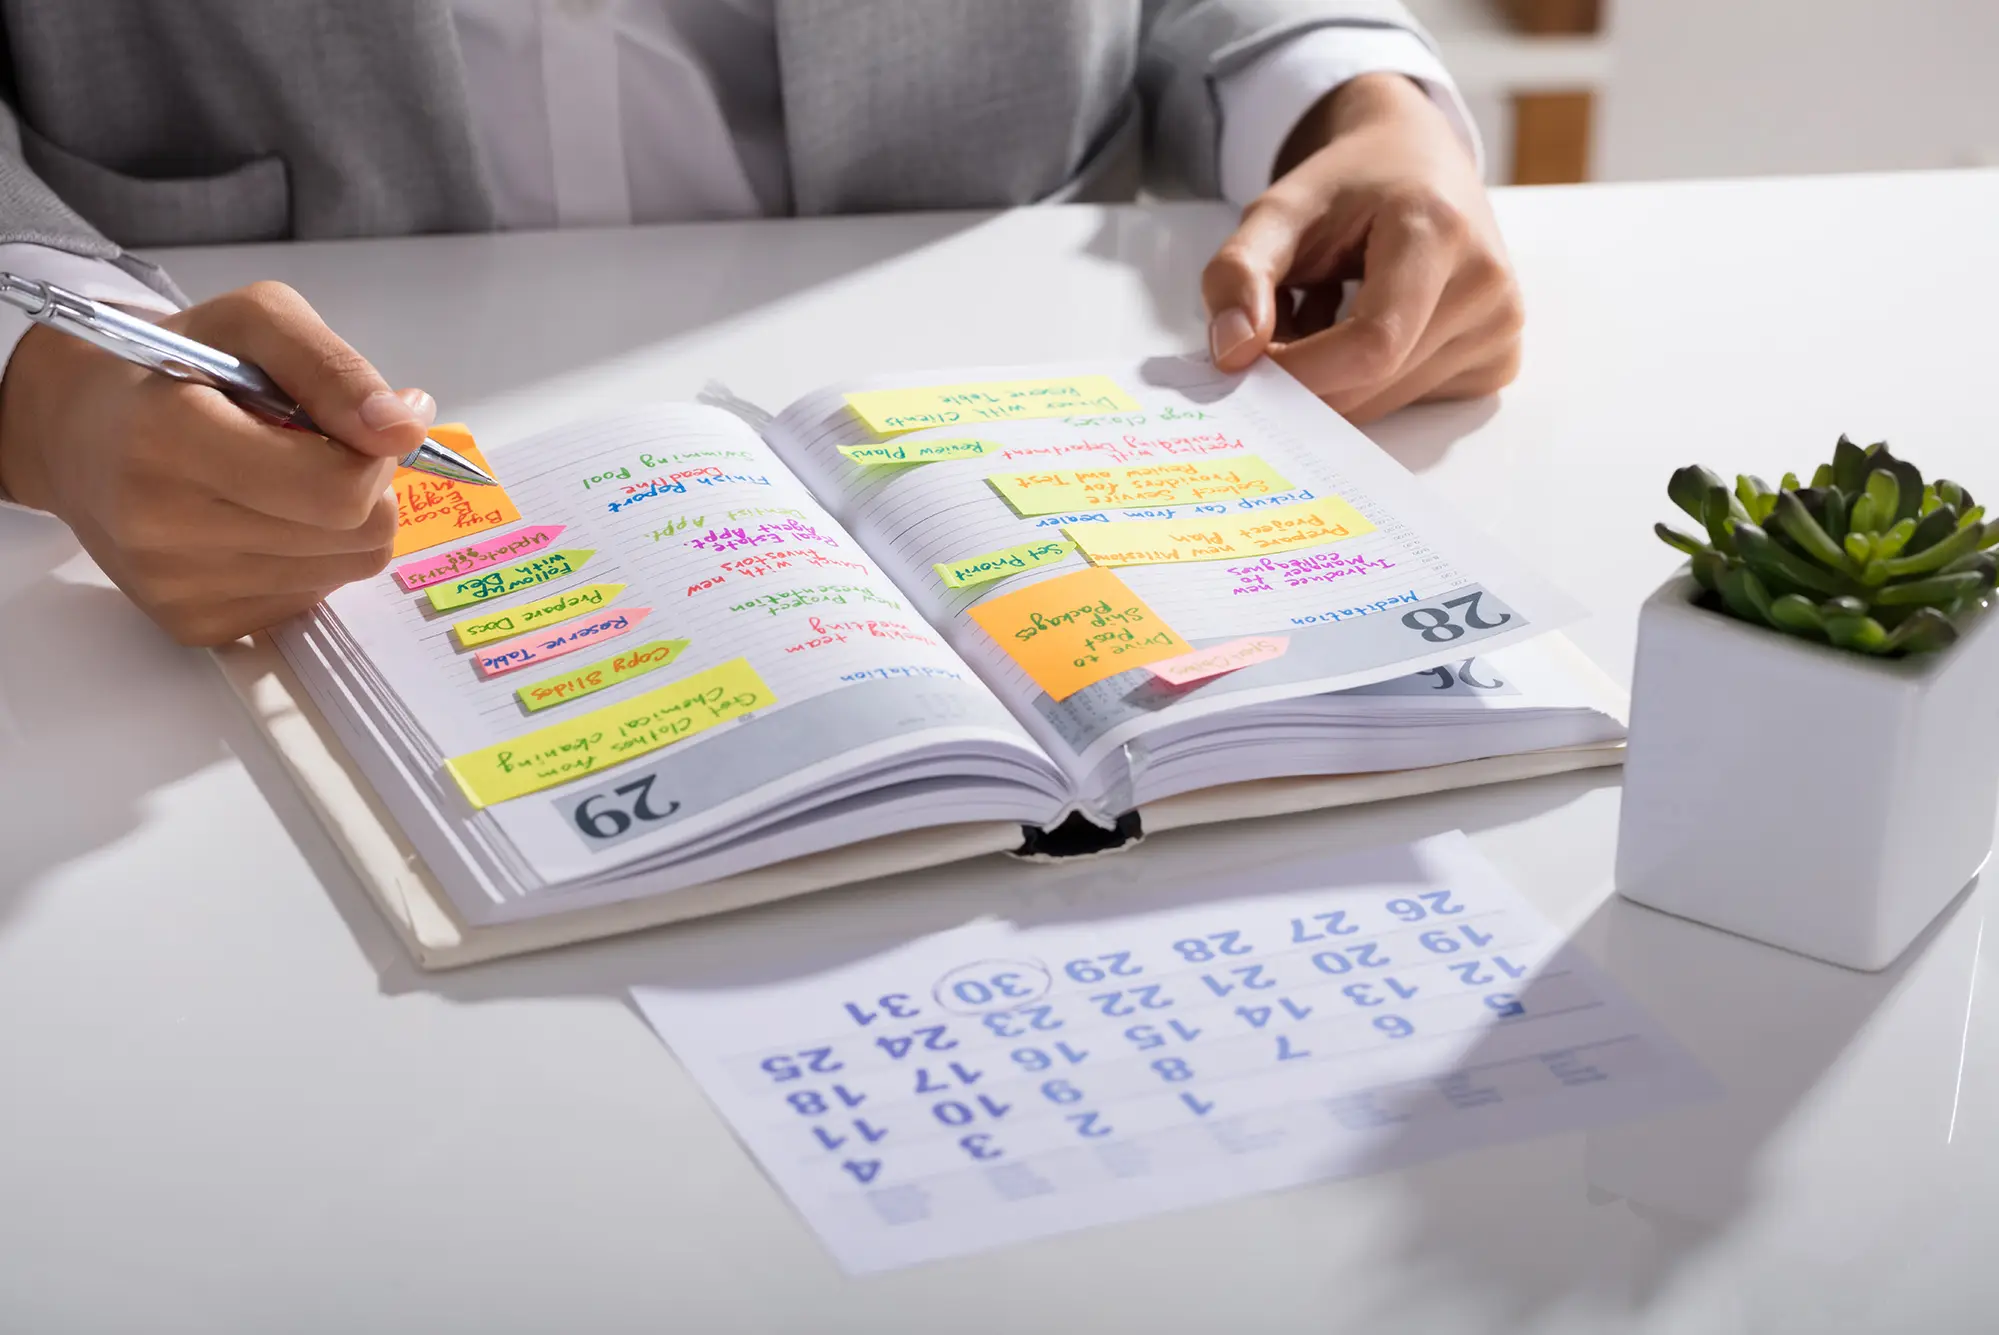 28
Meditation
Introduce new
Manager to
colleagues
Prepare new Milestone
Project Plan
Pickup Car from Dealer
Select Service
Providers for Test
Review and
Meeting with
Marketing Department
Yoga Classes
Dinner with Clients
Reserve Table
Drive to
Post
Ship
Packages
Set Priorit
Review Plans
26
29
Meditation
team
meeting
New Project
Presentation
Lunch with new
Investors
Real Estate
Agent Appt.
Dentist Appt.
Finish Report
Deadline
Swimming Pool
Get Clothes
from
Chemical cleaning
Copy Slides
Reserve Table
Prepare Docs
Follow up
with Dev
Update
Charts
Buy
Bacon
Eggs
1 2 3 4
5 6 7 8 9 10 11
12 13 14 15 16 17 18
19 20 21 22 23 24 25
26 27 28 29 30 31